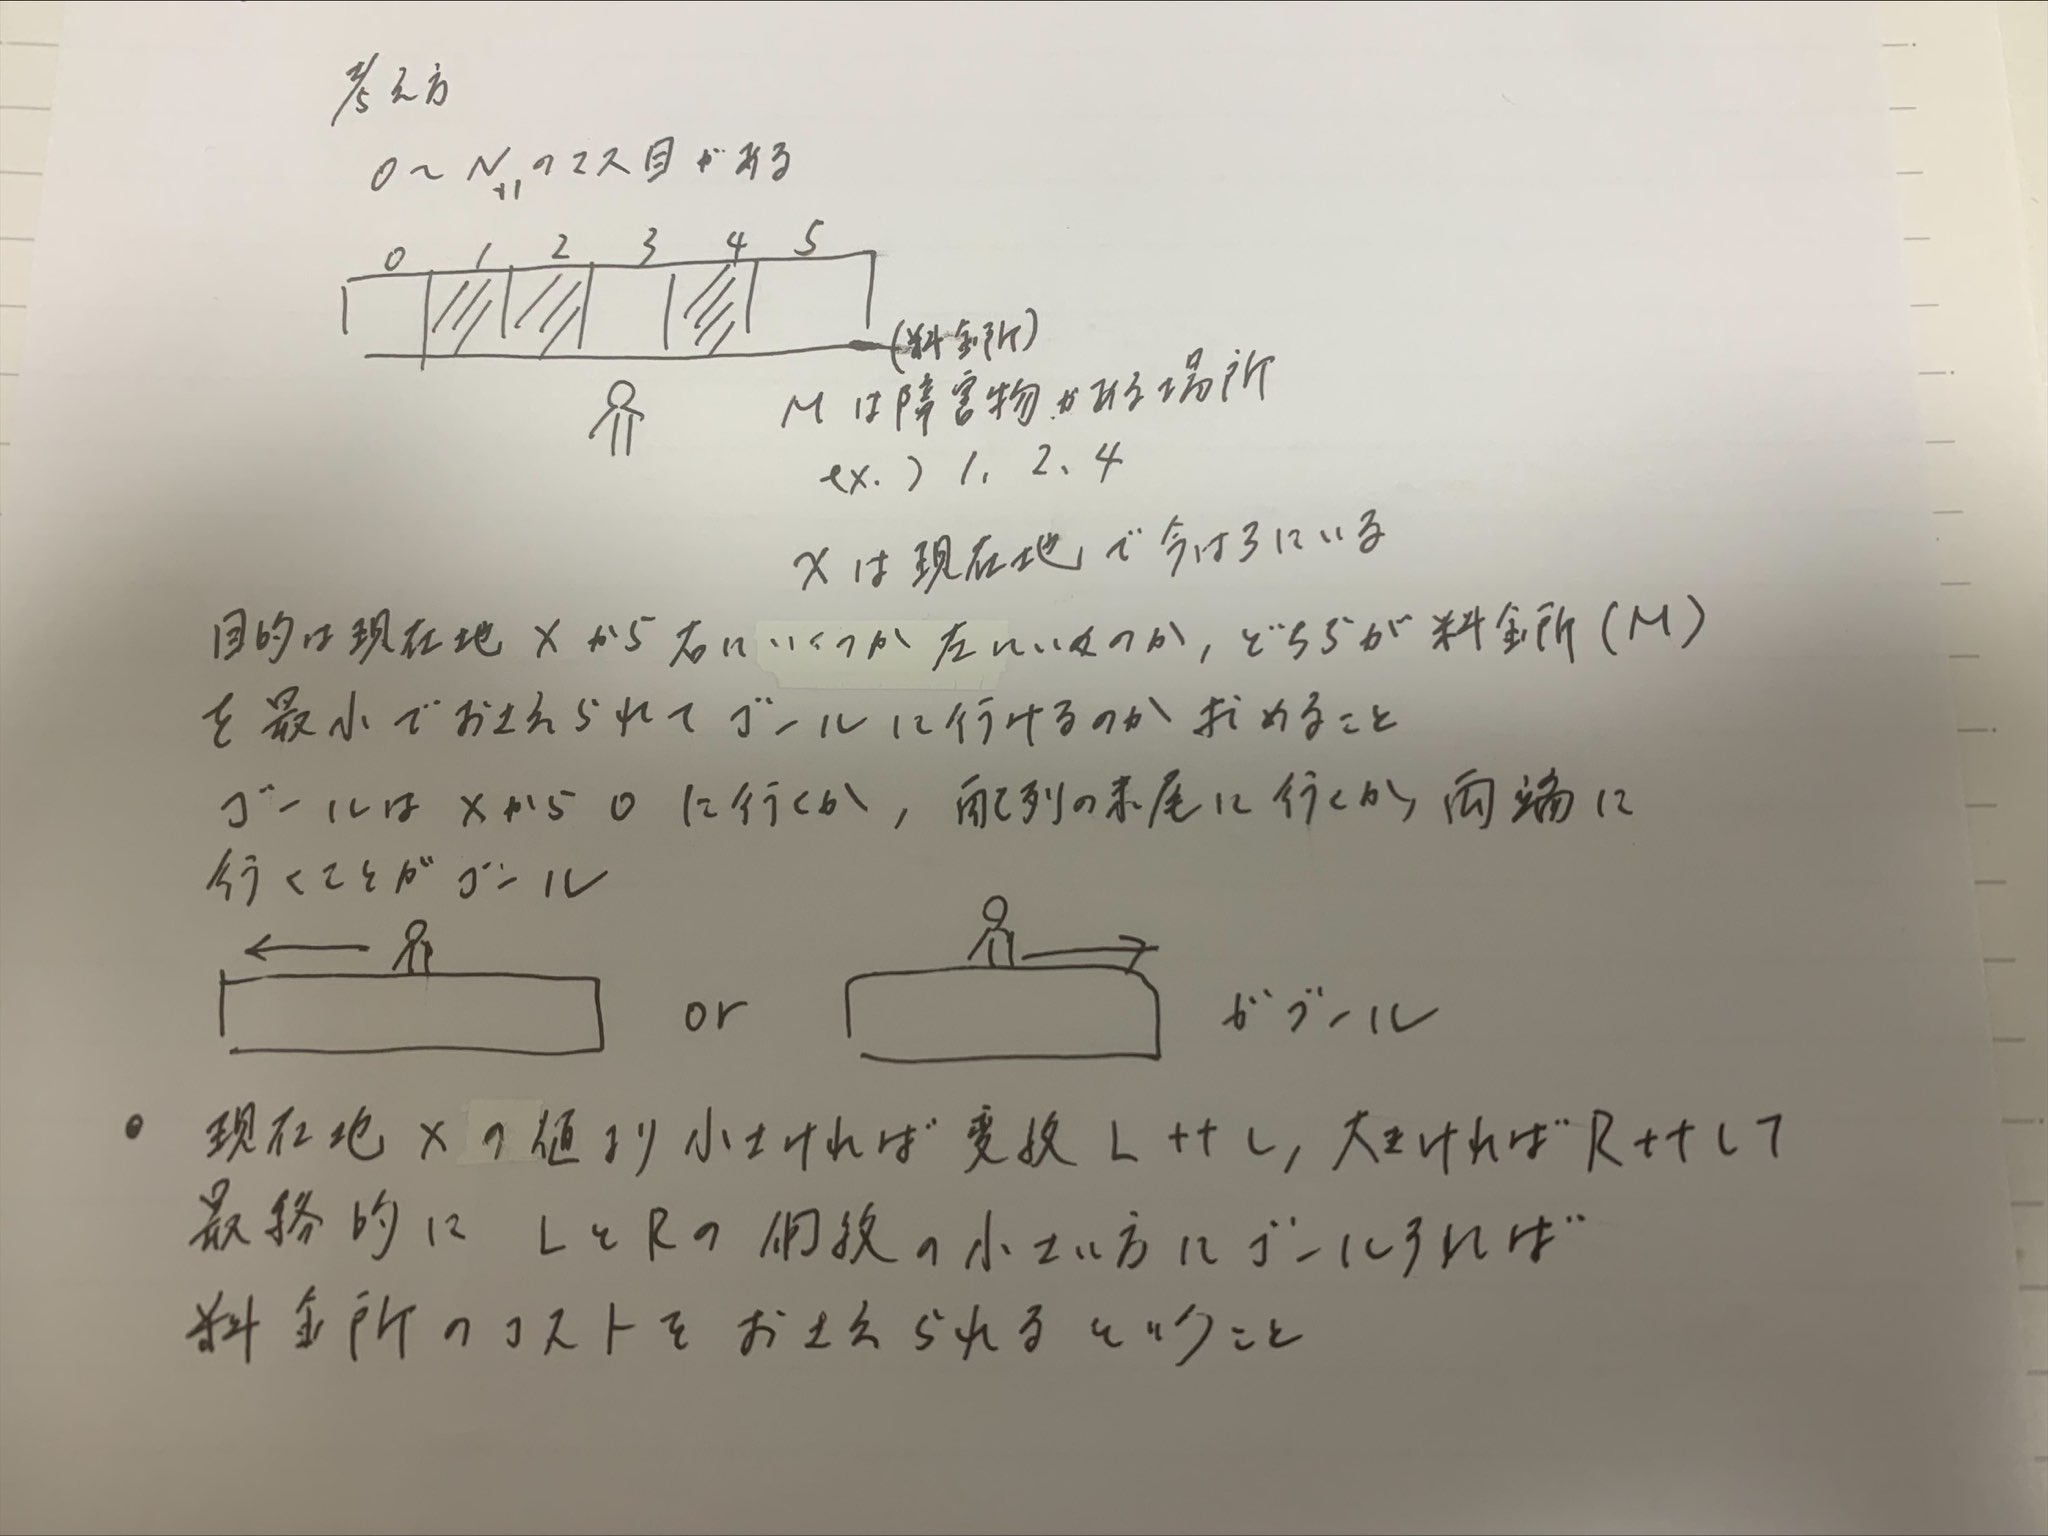 考え方
0〜N+1のマス目がある
0 1 2 3 4 5
(料金所)
Mは障害物がある場所
ex.) 1、2、4
Xは現在地で今は3にいる
目的は現在地Xから右にいくのか左にいくのか,どちらが料金所(M)
を最小でおさえられてゴールに行けるのか求めること
ゴールはXから0に行くか,配列の末尾に行くか,両端に
行くことがゴール
or がゴール
• 現在地Xの値より小さければ変数L++し,大きければR++して
最終的にLとRの個数の小さい方にゴールすれば
料金所のコストをおさえられるということ